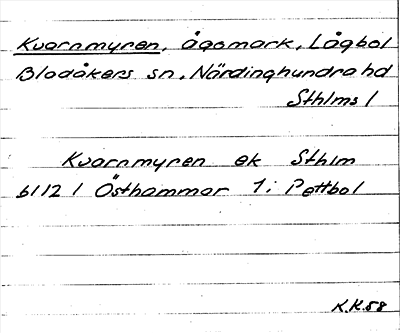 Kvarnmyren, ägomark, Lågbol
Bladåkers sn, Närdinghundra hd
Sthlms l
Kvarnmyren ek Sthlm
bl 12 I Östhammar 1: Pettbol
K.K.58